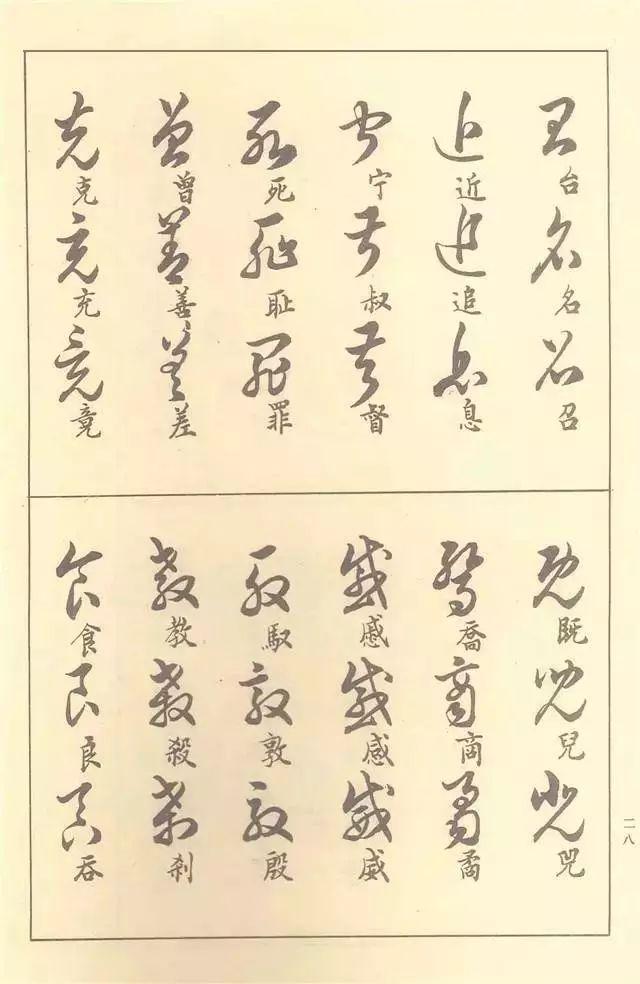 台名召
近追息
宁叔督
死耻罪
曾善差
克充竟
既兒兕
喬商矞
戚感威
馭敦殷
教殺刹
食良吞
二八